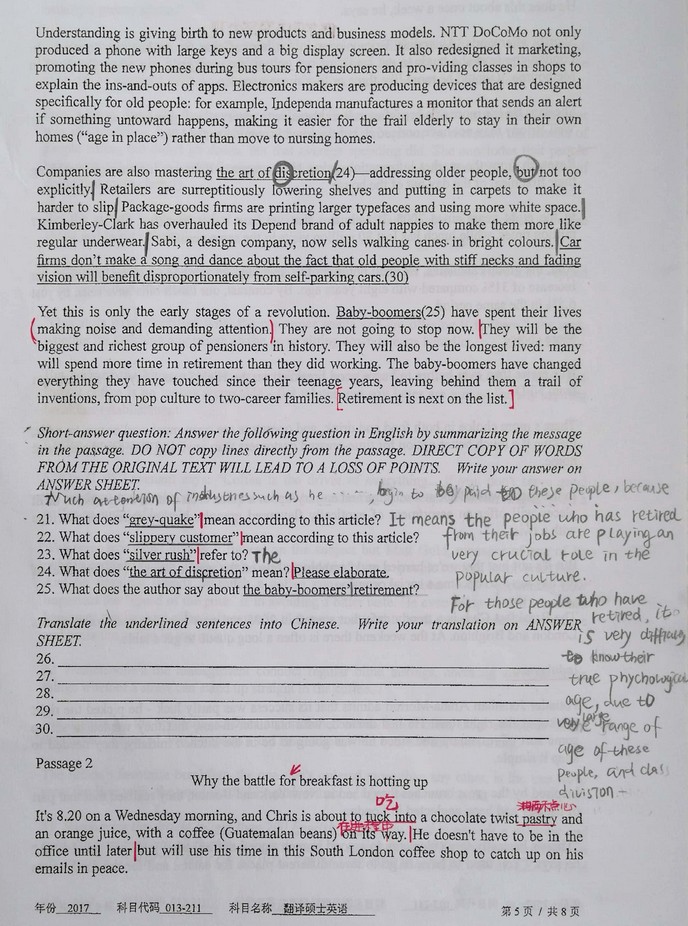 Understanding is giving birth to new products and business models. NTT DoCoMo not only
produced a phone with large keys and a big display screen. It also redesigned it marketing,
promoting the new phones during bus tours for pensioners and pro-viding classes in shops to
explain the ins-and-outs of apps. Electronics makers are producing devices that are designed
specifically for old people: for example, Independa manufactures a monitor that sends an alert
if something untoward happens, making it easier for the frail elderly to stay in their own
homes ("age in place") rather than move to nursing homes.
Companies are also mastering the art of discretion(24)—addressing older people, but not too
explicitly. Retailers are surreptitiously lowering shelves and putting in carpets to make it
harder to slip. Package-goods firms are printing larger typefaces and using more white space.
Kimberley-Clark has overhauled its Depend brand of adult nappies to make them more like
regular underwear. Sabi, a design company, now sells walking canes in bright colours. Car
firms don't make a song and dance about the fact that old people with stiff necks and fading
vision will benefit disproportionately from self-parking cars.(30)
Yet this is only the early stages of a revolution. Baby-boomers(25) have spent their lives
making noise and demanding attention. They are not going to stop now. They will be the
biggest and richest group of pensioners in history. They will also be the longest lived: many
will spend more time in retirement than they did working. The baby-boomers have changed
everything they have touched since their teenage years, leaving behind them a trail of
inventions, from pop culture to two-career families. Retirement is next on the list.
Short-answer question: Answer the following question in English by summarizing the message
in the passage. DO NOT copy lines directly from the passage. DIRECT COPY OF WORDS
FROM THE ORIGINAL TEXT WILL LEAD TO A LOSS OF POINTS. Write your answer on
ANSWER SHEET.
Much attention of industries such as he ......, begin to paid to these people, because
21. What does "grey-quake" mean according to this article? It means the people who has retired
22. What does "slippery customer" mean according to this article? from their jobs are playing an
23. What does "silver rush" refer to? The very crucial role in the
24. What does "the art of discretion" mean? Please elaborate. popular culture.
25. What does the author say about the baby-boomers' retirement? For those people who have
Translate the underlined sentences into Chinese. Write your translation on ANSWER retired, it
SHEET. is very difficulty
26. to know their
27. true phychological
28. age, due to
29. very large range of
30. age of these
people, and class
division
Passage 2
Why the battle for breakfast is hotting up
吃
It's 8.20 on a Wednesday morning, and Chris is about to tuck into a chocolate twist pastry and
an orange juice, with a coffee (Guatemalan beans) on its way. He doesn't have to be in the
office until later but will use his time in this South London coffee shop to catch up on his
emails in peace.
年份 2017 科目代码 013-211 科目名称 翻译硕士英语 第5页 / 共8页